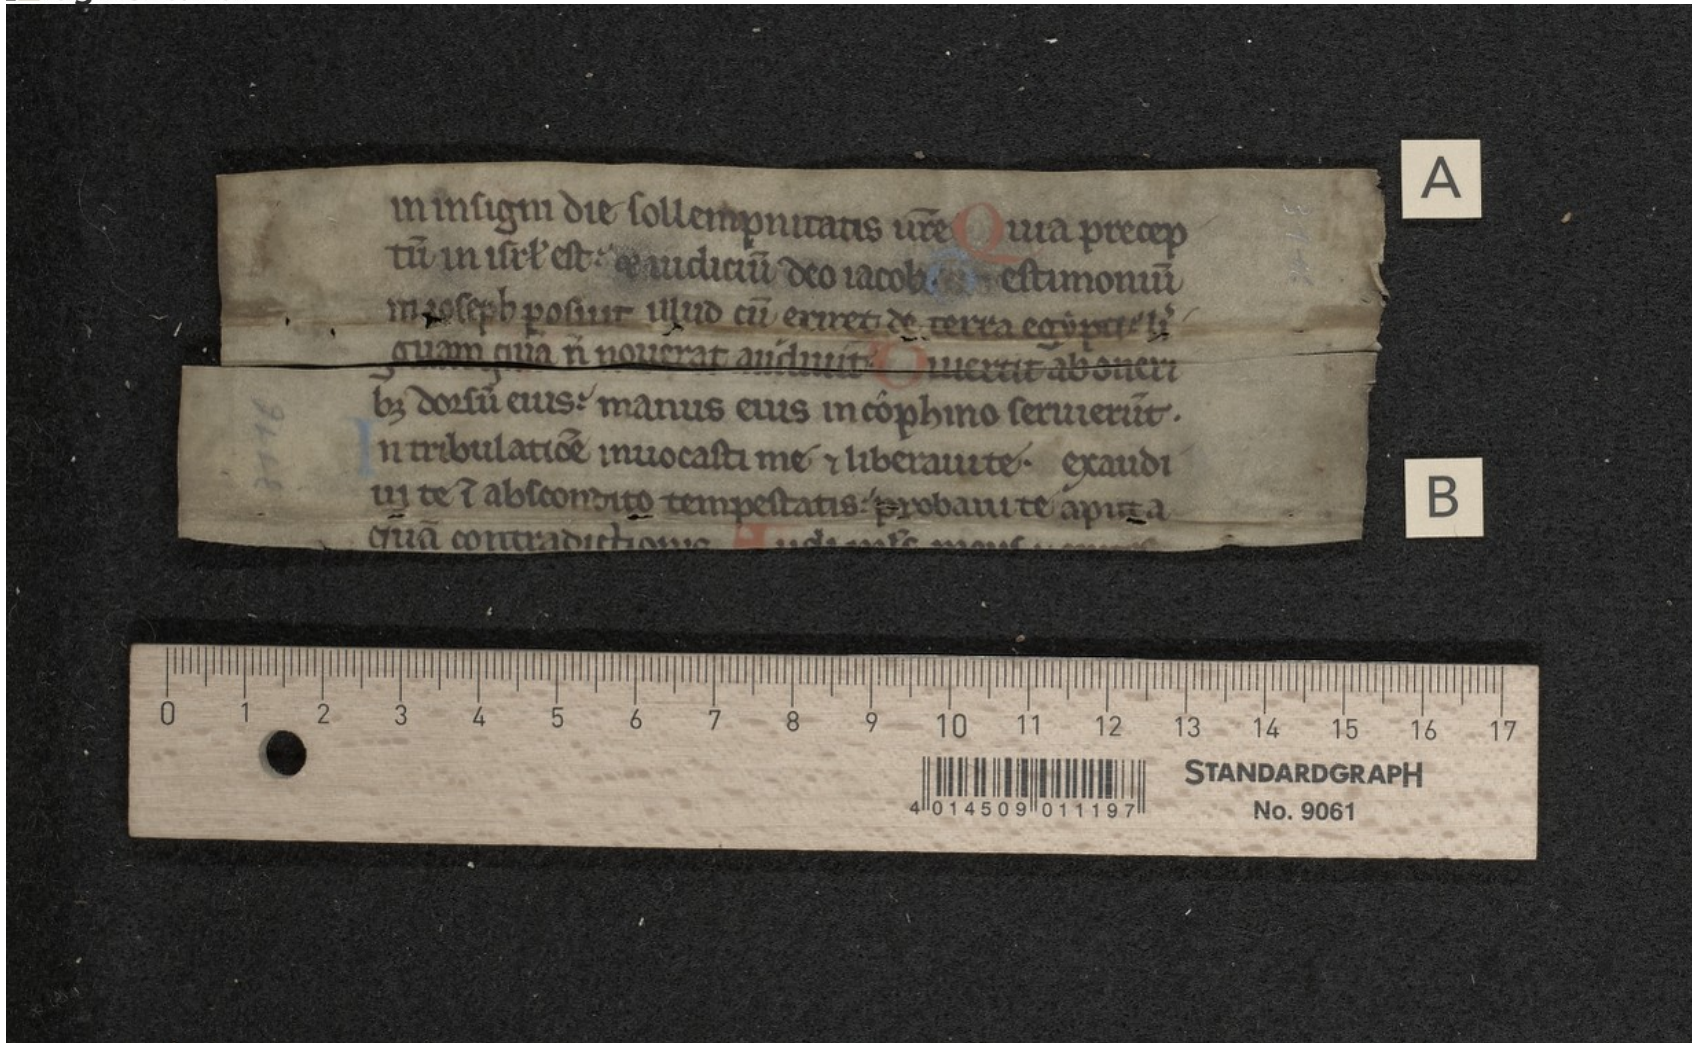 in insigni die sollempnitatis ur̄e Quia precep
tū in isrł est: & iudiciū deo iacob estimoniū
in ioseph posuit illud cū exiret de terra egypti: li
guam quā n̄ nouerat audiuit: Diuertit ab oneri
bꝫ dorsū eius: manus eius in cophino seruierūt.
In tribulatiōe inuocasti me ⁊ liberaui te. exaudi
ui te ī abscondito tempestatis: probaui te aput a
quā contradictionis Audi
A
B
0 1 2 3 4 5 6 7 8 9 10 11 12 13 14 15 16 17
STANDARDGRAPH
No. 9061
4 014509 011197